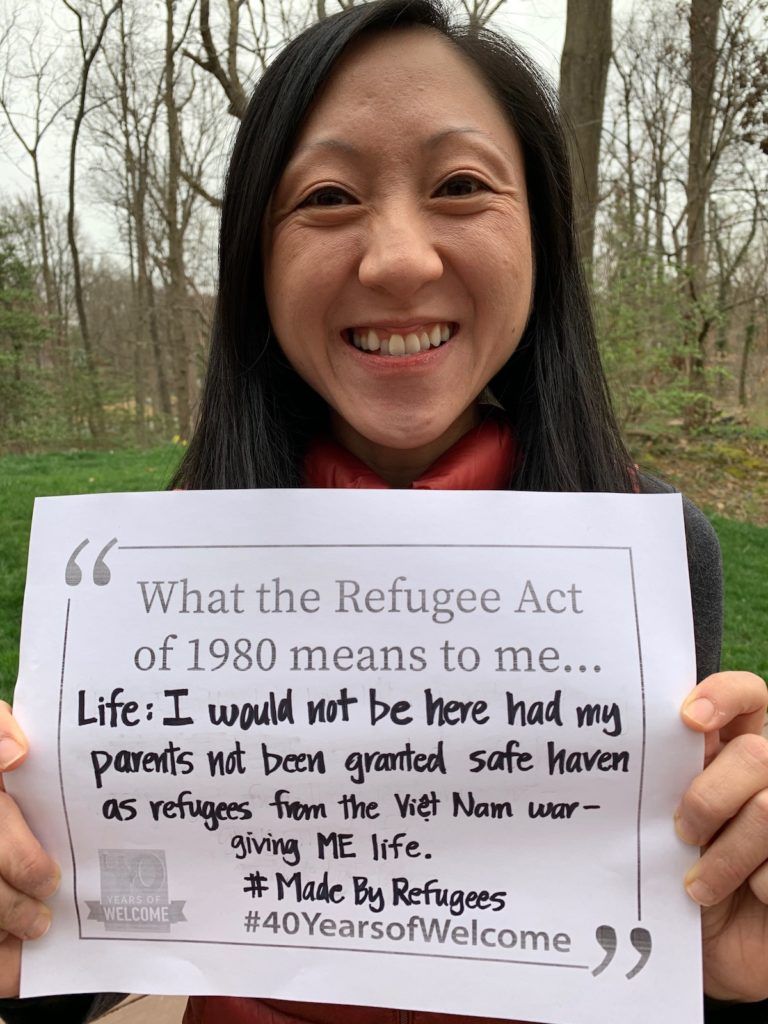 “
What the Refugee Act
of 1980 means to me...
Life: I would not be here had my
parents not been granted safe haven
as refugees from the Việt Nam war-
giving ME life.
# Made By Refugees
YEARS OF
WELCOME
#40YearsofWelcome
”